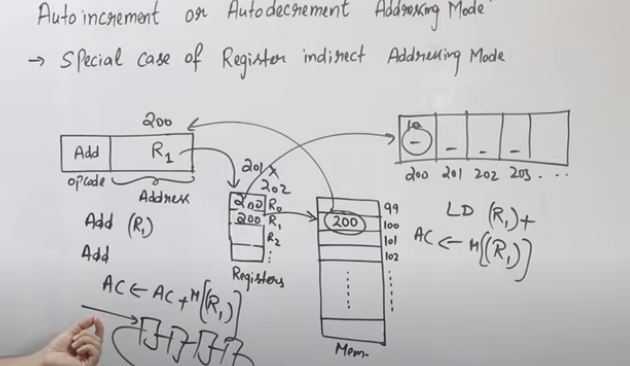 Auto increment or Auto decrement Addressing Mode
→ Special case of Register indirect Addressing Mode
200
Add R₁
opcode Address
Add (R₁)
Add
AC ← AC + M[(R₁)]
201 x
202
200 R₀
200 R₁
R₂
:
Registers
99
200 100
101
102
Mem.
10
200 201 202 203 . . .
LD (R₁)+
AC ← M[(R₁)]